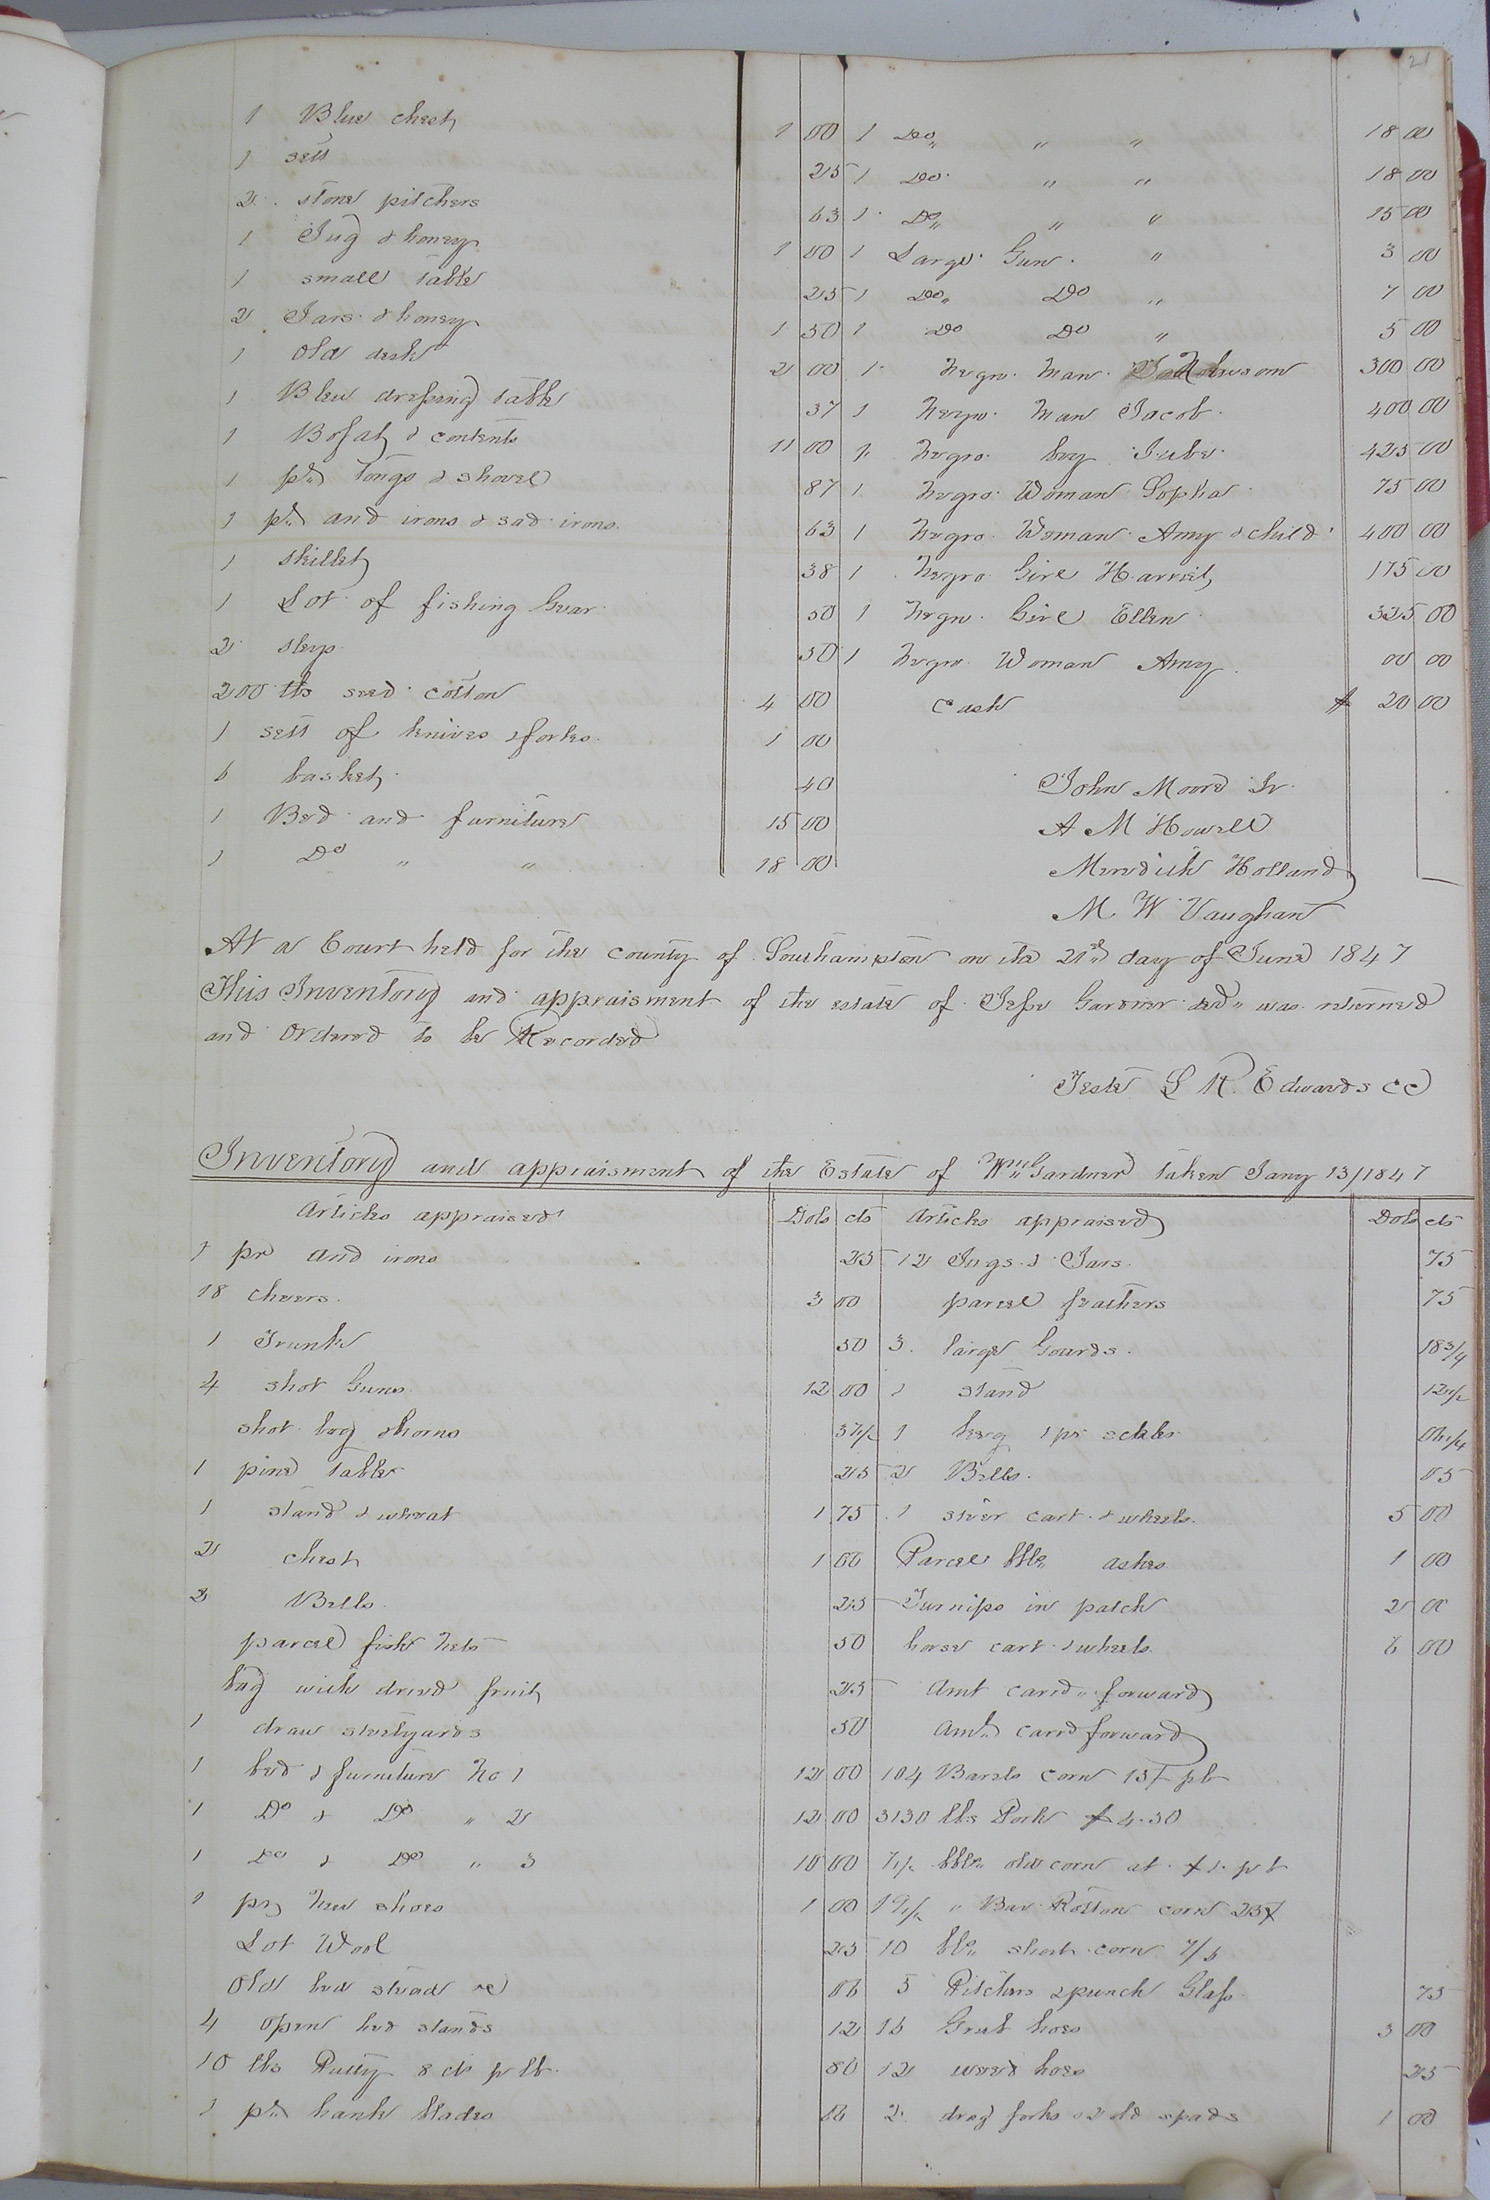 21
1 Blue chest 1 00
1 sett 25
2 stone pitchers 63
1 Jug & honey 1 00
1 small table 25
2 Jars & honey 1 50
1 old desk 2 00
1 Blew dressing table 37
1 Bofat & contents 11 00
1 pr Tongs & shovel 87
1 pr and irons & sad irons 63
1 skillet 38
1 Lot of fishing Gear 50
2 50
200 lbs seed cotton 4 00
1 sett of knives & forks 1 00
6 basket 40
1 Bed and furniture 15 00
1 Do " " 18 00
1 Do " " 18 00
1 Do " " 18 00
1 Do " " 15 00
1 Large Gun " 3 00
1 Do Do " 7 00
1 Do Do " 5 00
1 Negro Man 300 00
1 Negro Man Jacob 400 00
1 Negro boy Jube 425 00
1 Negro Woman Sophia 75 00
1 Negro Woman Amy & child 400 00
1 Negro Girl Harriet 175 00
1 Negro Girl Ellen 325 00
1 Negro Woman Amy 00 00
Cash $ 20 00
John Moore Jr
A M Howell
Meredith Holland
M W Vaughan
At a Court held for the county of Southampton on the 21st day of June 1847
This Inventory and appraisment of the estate of Jesse Gardner decd was returned
and Ordered to be Recorded
Teste L R Edwards CC
Inventory and appraisment of the Estate of Wm G Gardner taken Jany 13/1847
Articles appraised Dols cts Articles appraised Dols cts
1 pr and irons 25
18 cheers 3 00
1 Trunk 50
4 shot Guns 12 00
shot bag & horns 37 1/2
1 pine table 25
1 stand & wheat 1 75
2 chest 1 00
2 Bells 25
parcel fish nets 50
bag with dried fruit 25
1 draw steelyards 50
1 bed & furniture No 1 12 00
1 Do & Do " 2 12 00
1 Do & Do " 3 10 00
1 pr new shoes 1 00
Lot Wool 25
Old bed stead &c 06
4 open hed stands 12
10 lbs Putty 8 cts p lb 80
1 pr hank blades
12 Jugs & Jars 75
parcel feathers 75
3 large Gourds 18 3/4
1 stand 12 1/2
1 keg 1 pr 06 1/4
2 Bells 05
1 steer cart & wheels 5 00
Parcel bble ashes 1 00
Turnips in patch 2 00
horse cart & wheels 6 00
Amt carrd forward
Amt carrd forward
104 Barels corn 13/ pb
3130 lbs Pork $4.50
7 1/2 bble old corn at $1 p b
19 1/2 " Bar Rotton corn 25
10 bbl short corn 7/6
5 Pitchers & punch Glass 75
16 Grub hoes 3 00
12 weed hoes 25
2 drag forks & 2 old spads 1 00